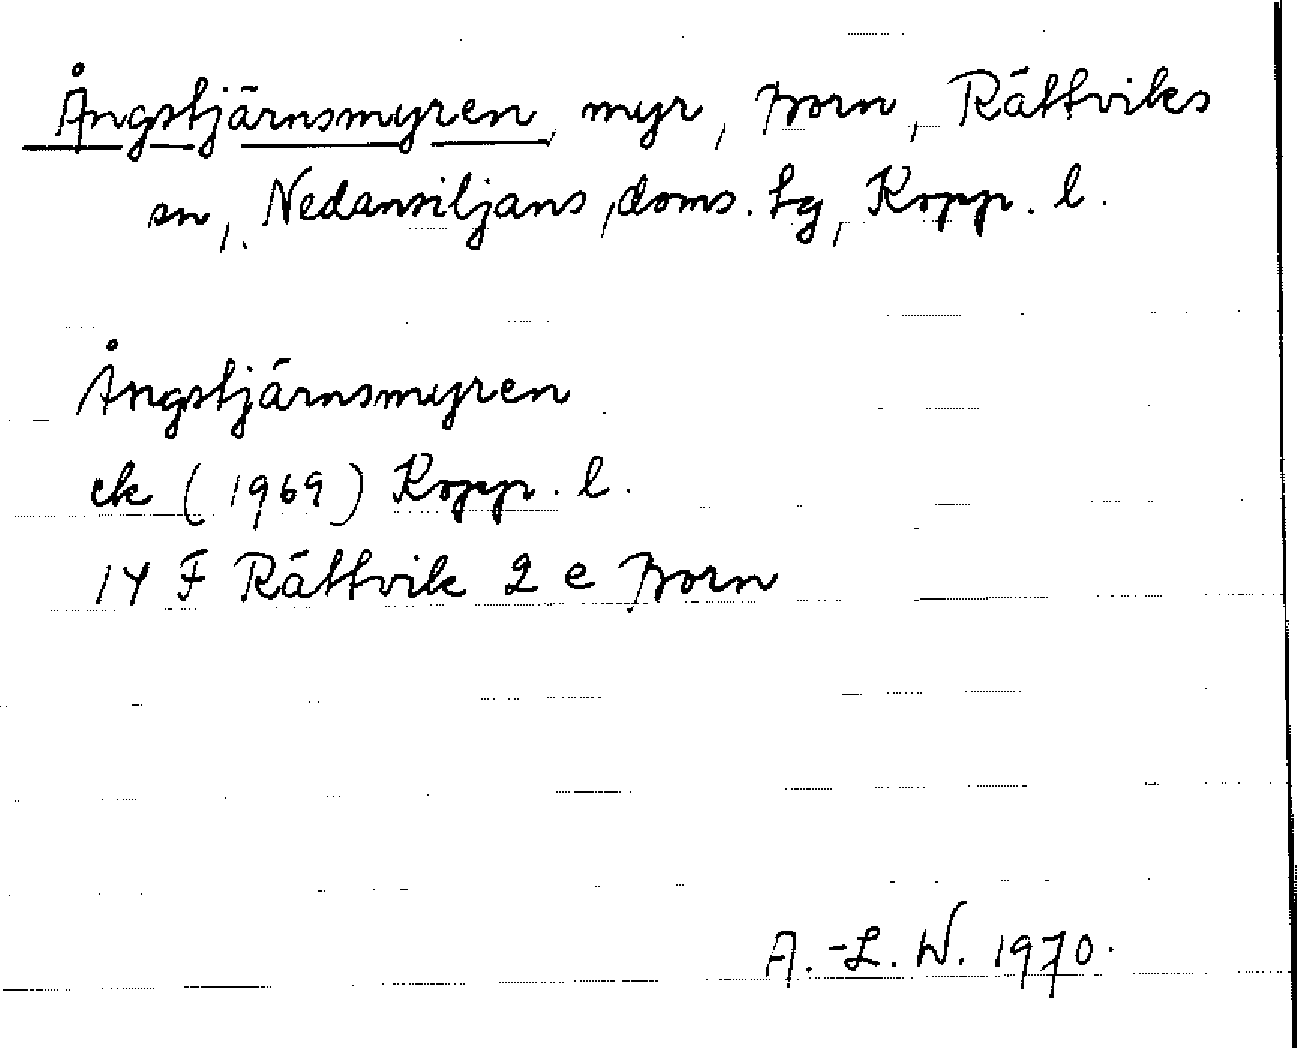 Ångstjärnsmyren, myr, Born, Rättviks
sn, Nedansiljans doms. lg, Kopp. l.
Ångstjärnsmyren
ek (1969) Kopp. l.
14 F Rättvik 2 e Born
A.-L. W. 1970.